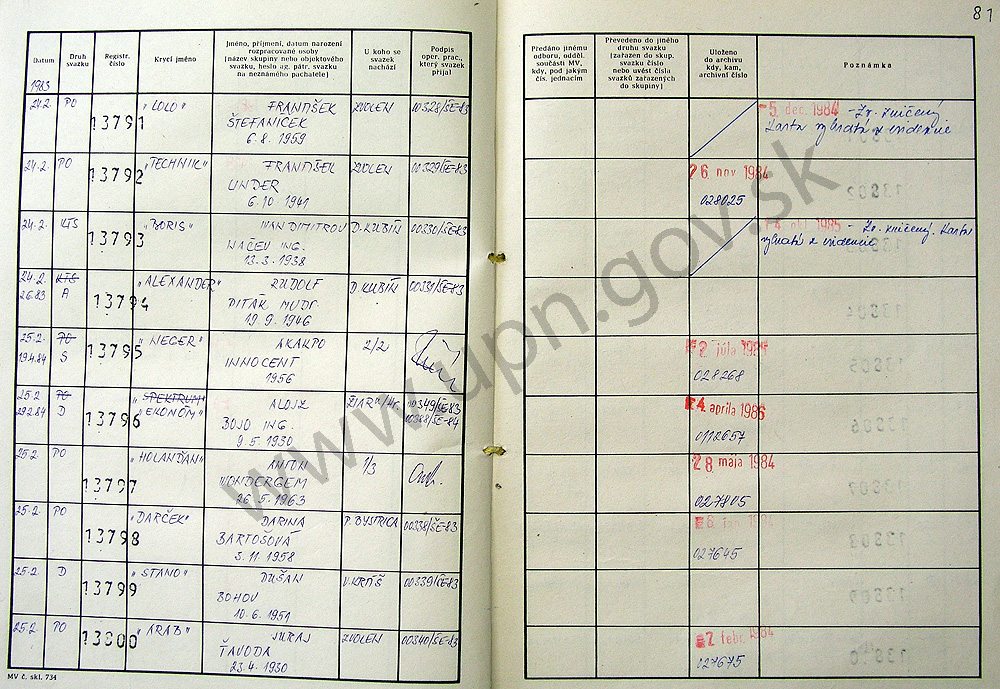 81
Datum
Druh svazku
Registr. číslo
Krycí jméno
Jméno, příjmení, datum narození rozpracované osoby (název skupiny nebo objektového svazku, heslo ag. pátr. svazku na neznámého pachatele)
U koho se svazek nachází
Podpis oper. prac., který svazek přijal
Předáno jinému odboru, odděl. součásti MV, kdy, pod jakým čís. jednacím
Převedeno do jiného druhu svazku (zařazen do skup. svazku číslo nebo uvést čísla svazků zařazených do skupiny)
Uloženo do archivu kdy, kam, archivní číslo
Poznámka
1983
24.2. PO 13791 "LOLO" FRANTIŠEK ZVOLEN 00328/ŠE-83
ŠTEFANIČEK
6.8.1959
5. dec. 1984 - Zv. zničený
karta vybratá z evidencie
24.2. PO 13792 "TECHNIK" FRANTIŠEK ZVOLEN 00329/ŠE-83
UNDER
6.10.1941
26. nov 1984
028025
24.2. KTS 13793 "BORIS" IVAN DIMITROV D.KUBÍN 00330/ŠE-83
NAČEV ING.
13.3.1938
1985 - Zv. zničený. Karta
vybratá z evidencie
24.2. KTS 13794 "ALEXANDER" RUDOLF D.KUBÍN 00331/ŠE-83
2.6.83 A PITÁK MUDr.
19.9.1946
25.2. PO 13795 "NEGER" AKAKPO 2/2
19.4.84 S INNOCENT
1956
2. júla 1984
028268
25.2 PO 13796 "SPEKTRUM" ALOJZ ŽIAR n/Hr. 00349/ŠE-83
29.2.84 D "EKONOM" BOJO ING. 00388/ŠE-84
9.5.1930
4. apríla 1986
0112657
25.2. PO 13797 "HOLANĎAN" ANTON 1/3
WONDERGEM
26.5.1963
28 mája 1984
027405
25.2. PO 13798 "DARČEK" DARINA P.BYSTRICA 00338/ŠE-83
BARTOŠOVÁ
3.11.1958
jan 1984
027645
25.2. D 13799 "STANO" DUŠAN V.KRTÍŠ 00339/ŠE-83
BOHOV
10.6.1951
25.2. PO 13800 "ARAB" JURAJ ZVOLEN 00340/ŠE-83
ŤAVODA
23.4.1930
2 febr. 1984
027675
MV č. skl. 734
www.upn.gov.sk